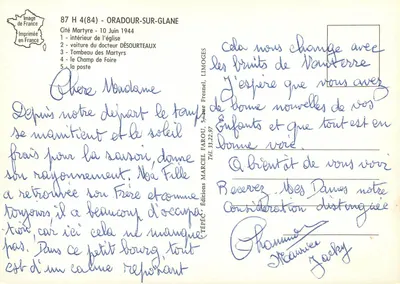 Image
de France
Imprimée
en France
87 H 4(84) - ORADOUR-SUR-GLANE
Cité Martyre - 10 Juin 1944
1 - intérieur de l'église
2 - voiture du docteur DÉSOURTEAUX
3 - Tombeau des Martyrs
4 - le Champ de Foire
5 - la poste
Chère Madame
Depuis notre départ le temps
se maintient et le soleil
frais pour la saison, donne
son rayonnement. Ma Fille
a retrouvée son Frère et comme
toujours il a beaucoup d'occupa
tion, car ici cela ne manque
pas. Dans ce petit bourg, tout
est d'un calme reposant
Éditions MARCEL FAROU, LIMOGES
Cela nous change avec
les bruits de Nanterre
J'espère que vous avez
de bonne nouvelles de vos
Enfants et que tout est en
bonne voie.
A bientôt de vous voir
Recevez Mes Dames notre
Considération distinguée
Maurice
Jacky